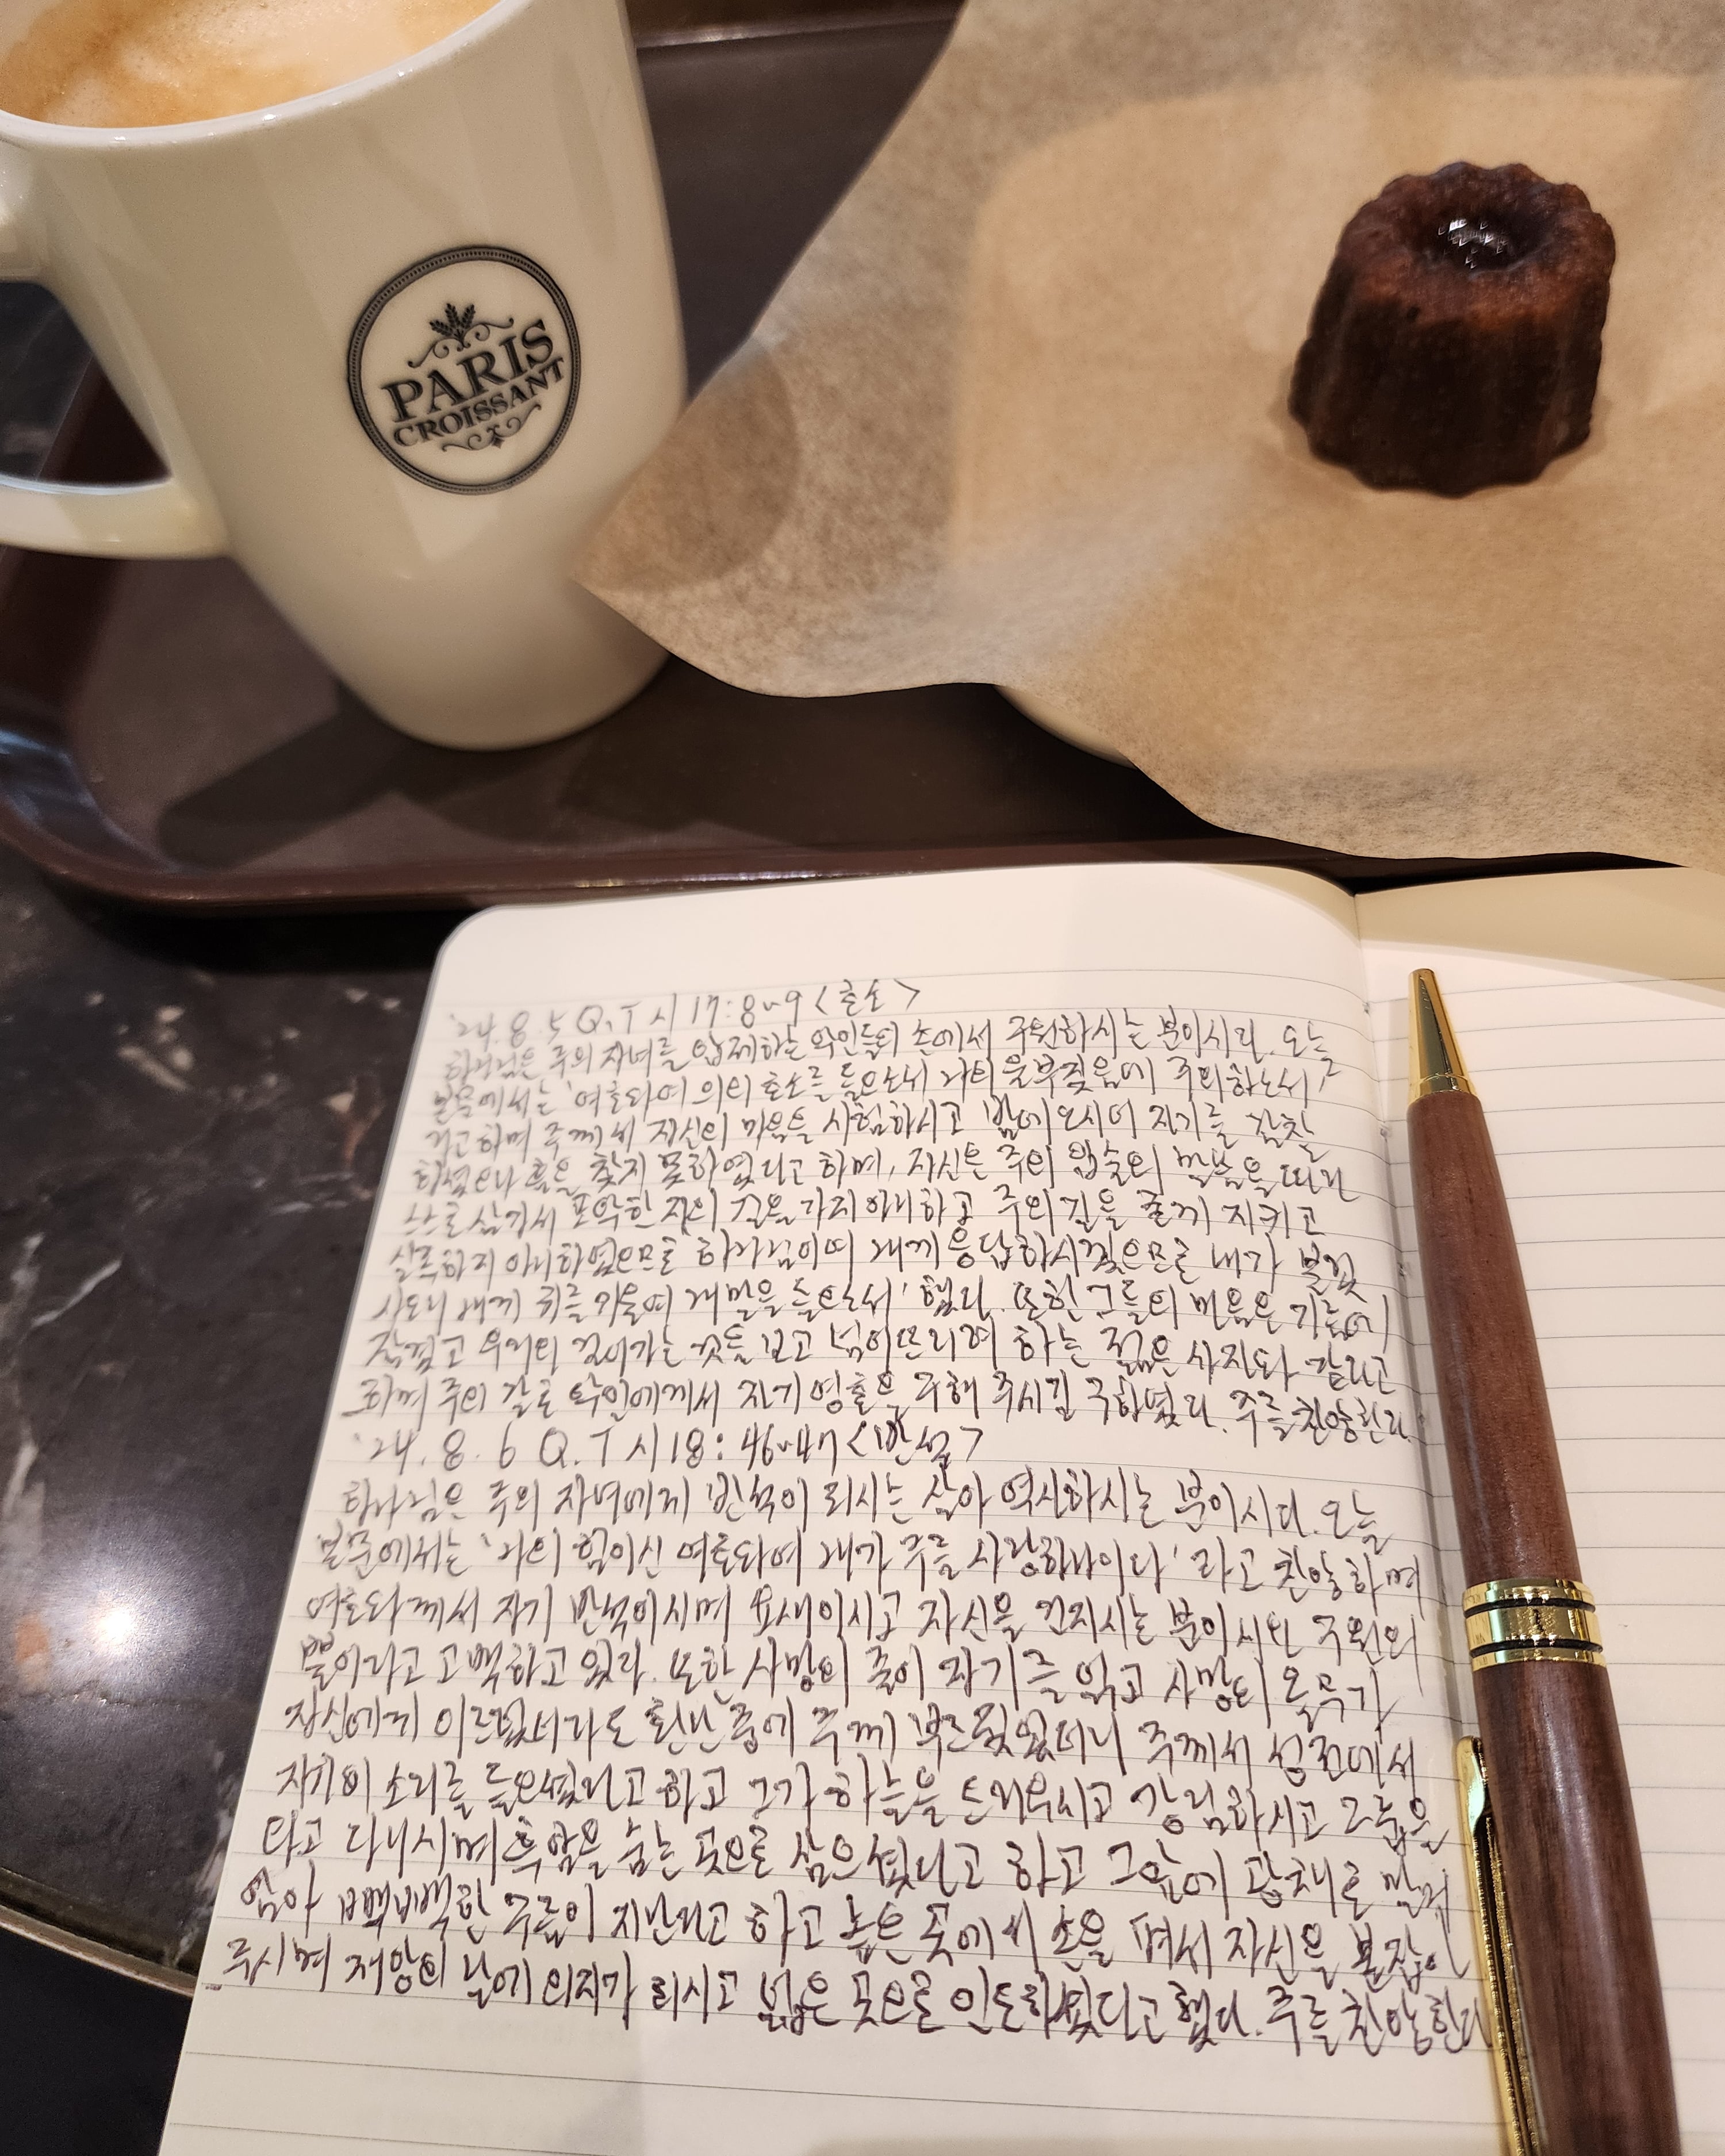 PARIS
CROISSANT
'24. 8. 5 Q.T 시 17:8~9 <호소>
하나님은 주의 자녀를 압제하는 악인들의 손에서 구원하시는 분이시다. 오늘
본문에서는 '여호와여 의의 호소를 들으소서 나의 울부짖음에 주의하소서'
라고 하며 주께서 자신의 마음을 시험하시고 밤에 오시어 자기를 감찰
하셨으나 흠을 찾지 못하였다고 하며, 자신은 주의 입술의 말씀을 따라
스스로 삼가서 포악한 자의 길을 가지 아니하고 주의 길을 굳게 지키고
실족하지 아니하였으므로 '하나님이여 내게 응답하시겠으므로 내가 불렀
사오니 내게 귀를 기울여 내 말을 들으소서' 했다. 또한 그들의 마음은 기름에
잠겼고 우리의 걸어가는 것을 보고 넘어뜨리려 하는 젊은 사자와 같다고
하며 주의 칼로 악인에게서 자기 영혼을 구해 주시길 구하였다. 주를 찬양한다.
'24. 8. 6 Q.T 시 18:46~47 <반석>
하나님은 주의 자녀에게 반석이 되시는 살아 역사하시는 분이시다. 오늘
본문에서는 '나의 힘이신 여호와여 내가 주를 사랑하나이다' 라고 찬양하며
여호와께서 자기 반석이시며 요새이시고 자신을 건지시는 분이시요 구원의
뿔이라고 고백하고 있다. 또한 사망의 줄이 자기를 얽고 사망의 올무가
자신에게 이르렀더라도 환난 중에 주께 부르짖었더니 주께서 성전에서
자기의 소리를 들으셨다고 하고 그가 하늘을 드리우시고 강림하시고 그룹을
타고 다니시며 흑암을 숨는 곳으로 삼으셨다고 하고 그 앞에 광채로 말미
암아 빽빽한 구름이 지난다고 하고 높은 곳에서 손을 펴서 자신을 붙잡아
주시며 재앙의 날에 의지가 되시고 넓은 곳으로 인도하셨다고 했다. 주를 찬양한다